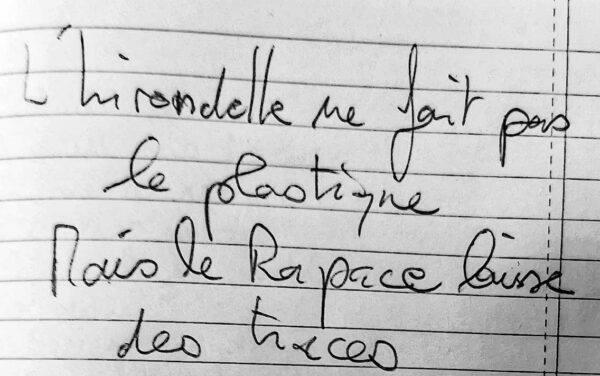 L'hirondelle ne fait pas
le plastique
Mais le Rapace laisse
des traces